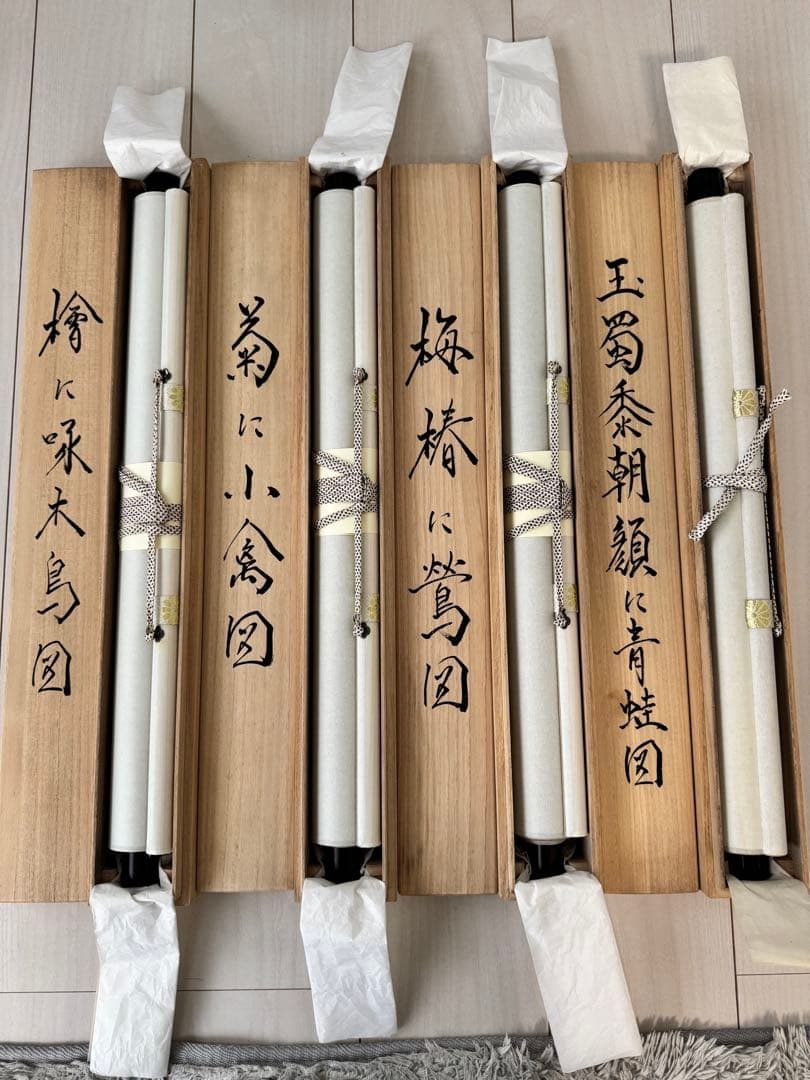 檜に啄木鳥図
菊に小禽図
梅椿に鶯図
玉蜀黍朝顔に青蛙図